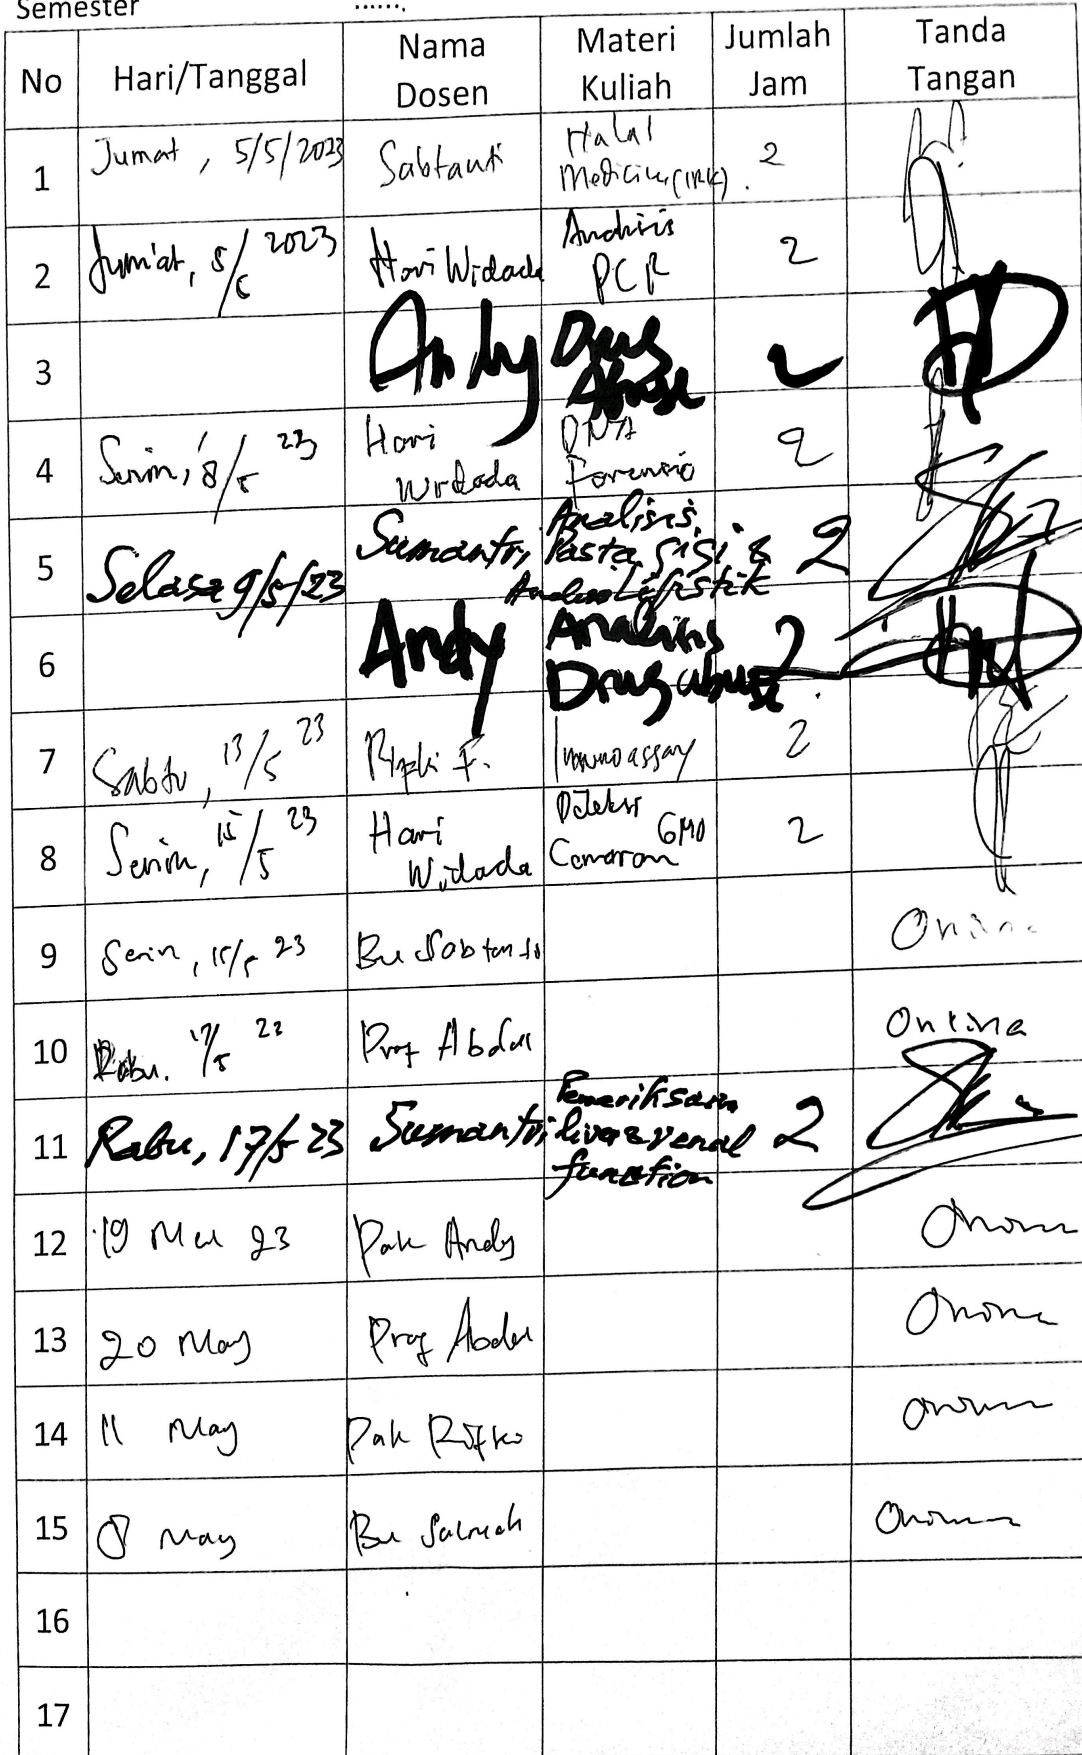 Semester ......
No Hari/Tanggal Nama Dosen Materi Kuliah Jumlah Jam Tanda Tangan
1 Jumat, 5/5/2023 Sabtanti Halal Medicine (IRK). 2
2 Jum'at, 5/5 2023 Hari Widada Analisis PCR 2
3 Andy Drug Abuse 2
4 Senin, 8/5 23 Hari Widada DNA Forensic 2
5 Selasa 9/5/23 Sumantri Analisis Pasta gigi & Analisis Lipstik 2
6 Andy Analisis Drug abuse 2
7 Sabtu, 13/5 23 Rizki F. Immunoassay 2
8 Senin, 15/5 23 Hari Widada Deteksi Cemaran GMO 2
9 Senin, 15/5 23 Bu Sabtanti Online
10 Rabu. 17/5 23 Prof Abdul Online
11 Rabu, 17/5 23 Sumantri Pemeriksaan liver & renal function 2
12 19 Mei 23 Pak Andy Online
13 20 May Prof Abdul Online
14 11 May Pak Online
15 8 May Bu Online
16
17